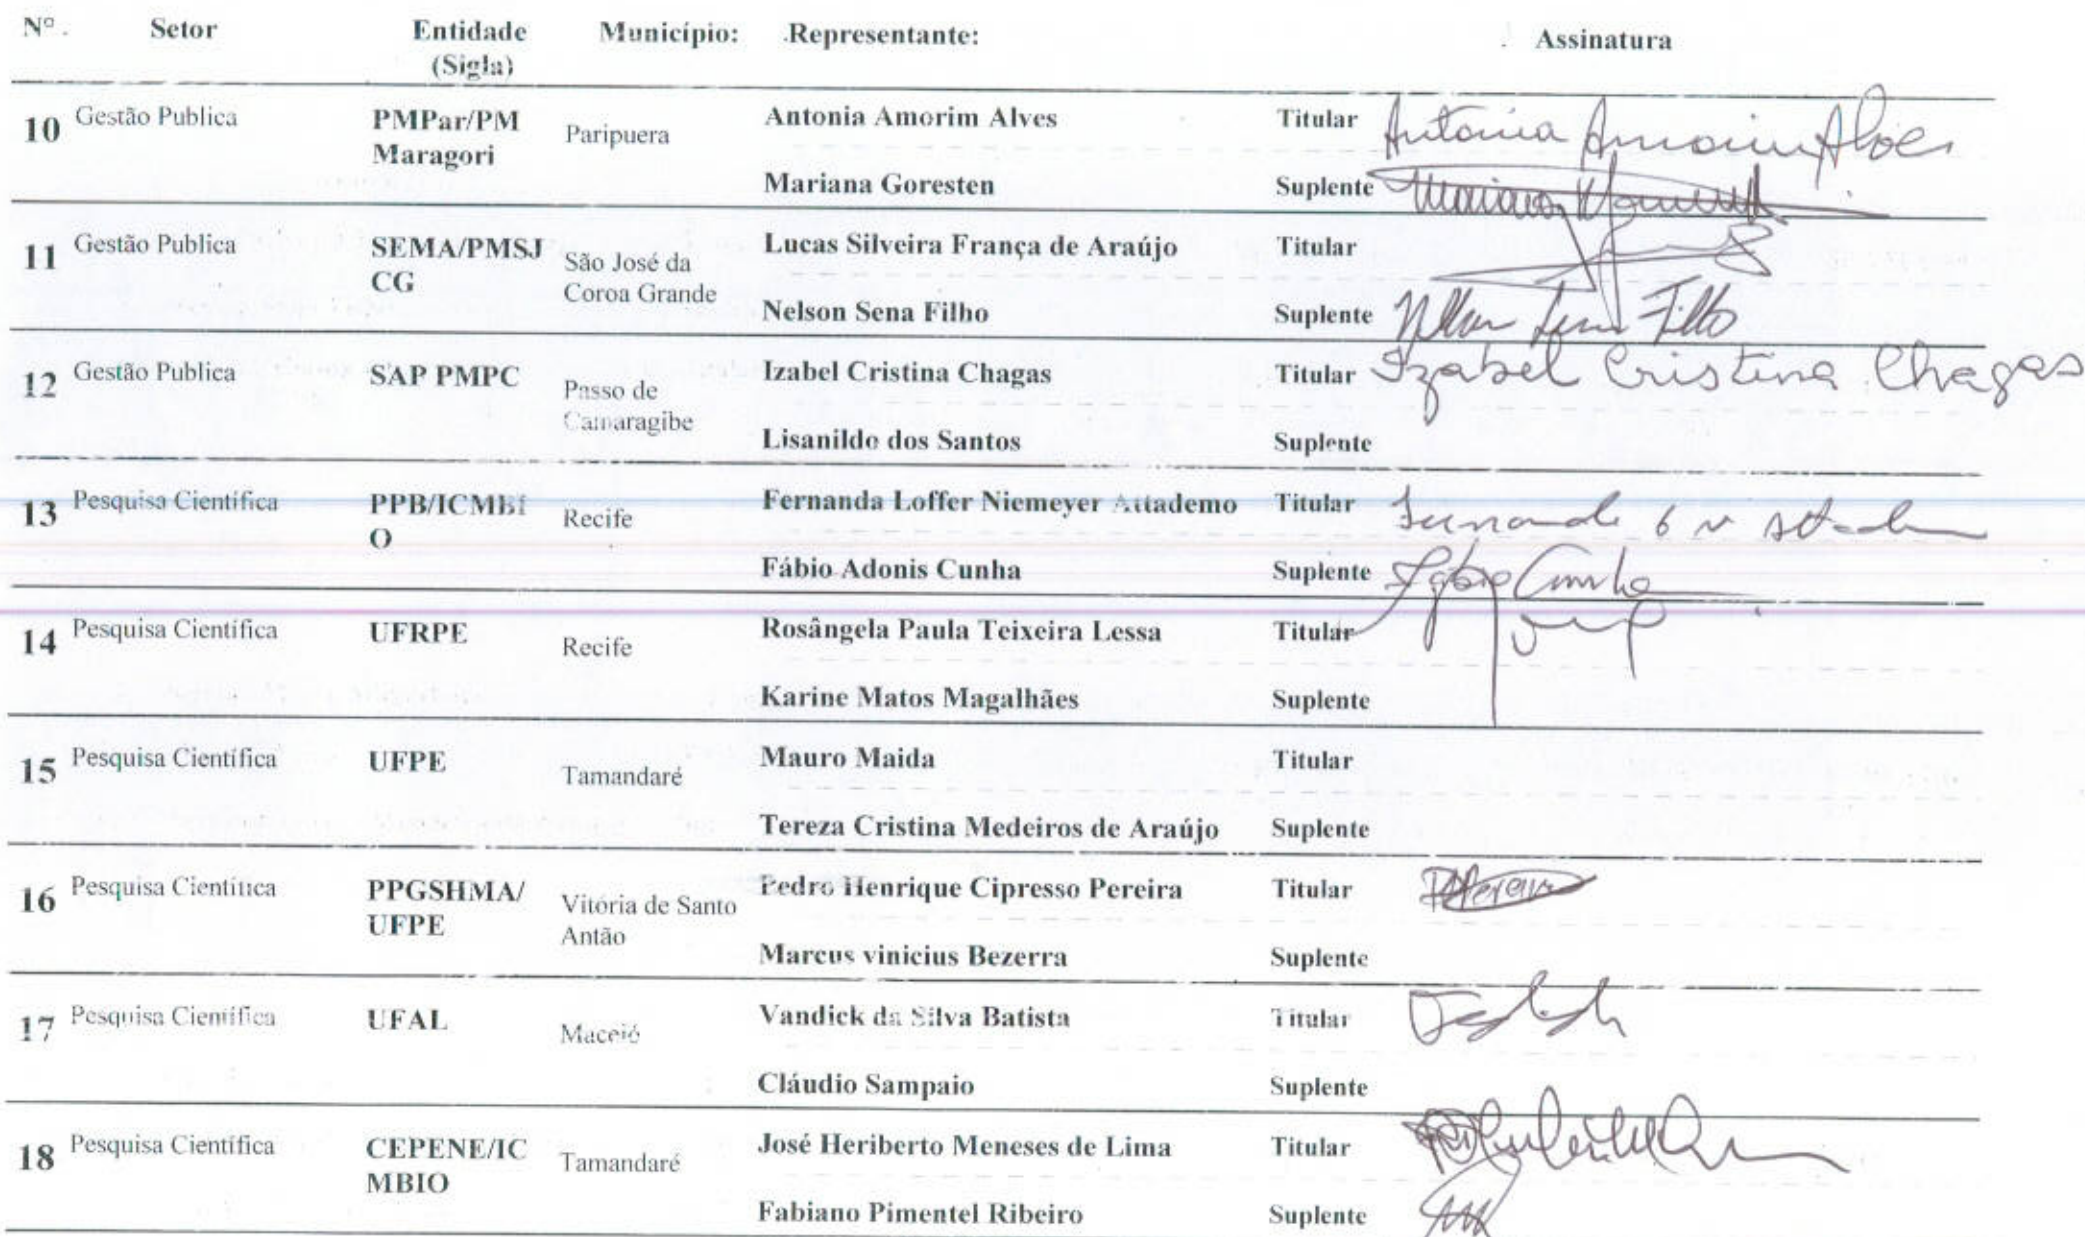 Nº. Setor Entidade (Sigla) Município: Representante: Assinatura
10 Gestão Publica PMPar/PM Maragori Paripuera Antonia Amorim Alves Titular Antonia Amorim Alves
Mariana Goresten Suplente
11 Gestão Publica SEMA/PMSJ CG São José da Coroa Grande Lucas Silveira França de Araújo Titular
Nelson Sena Filho Suplente Nelson Sena Filho
12 Gestão Publica SAP PMPC Passo de Camaragibe Izabel Cristina Chagas Titular Izabel Cristina Chagas
Lisanildo dos Santos Suplente
13 Pesquisa Científica PPB/ICMBI O Recife Fernanda Loffer Niemeyer Attademo Titular
Fábio Adonis Cunha Suplente Fábio Cunha
14 Pesquisa Científica UFRPE Recife Rosângela Paula Teixeira Lessa Titular
Karine Matos Magalhães Suplente
15 Pesquisa Científica UFPE Tamandaré Mauro Maida Titular
Tereza Cristina Medeiros de Araújo Suplente
16 Pesquisa Científica PPGSHMA/ UFPE Vitória de Santo Antão Pedro Henrique Cipresso Pereira Titular
Marcus vinicius Bezerra Suplente
17 Pesquisa Científica UFAL Maceió Vandick da Silva Batista Titular
Cláudio Sampaio Suplente
18 Pesquisa Científica CEPENE/IC MBIO Tamandaré José Heriberto Meneses de Lima Titular
Fabiano Pimentel Ribeiro Suplente